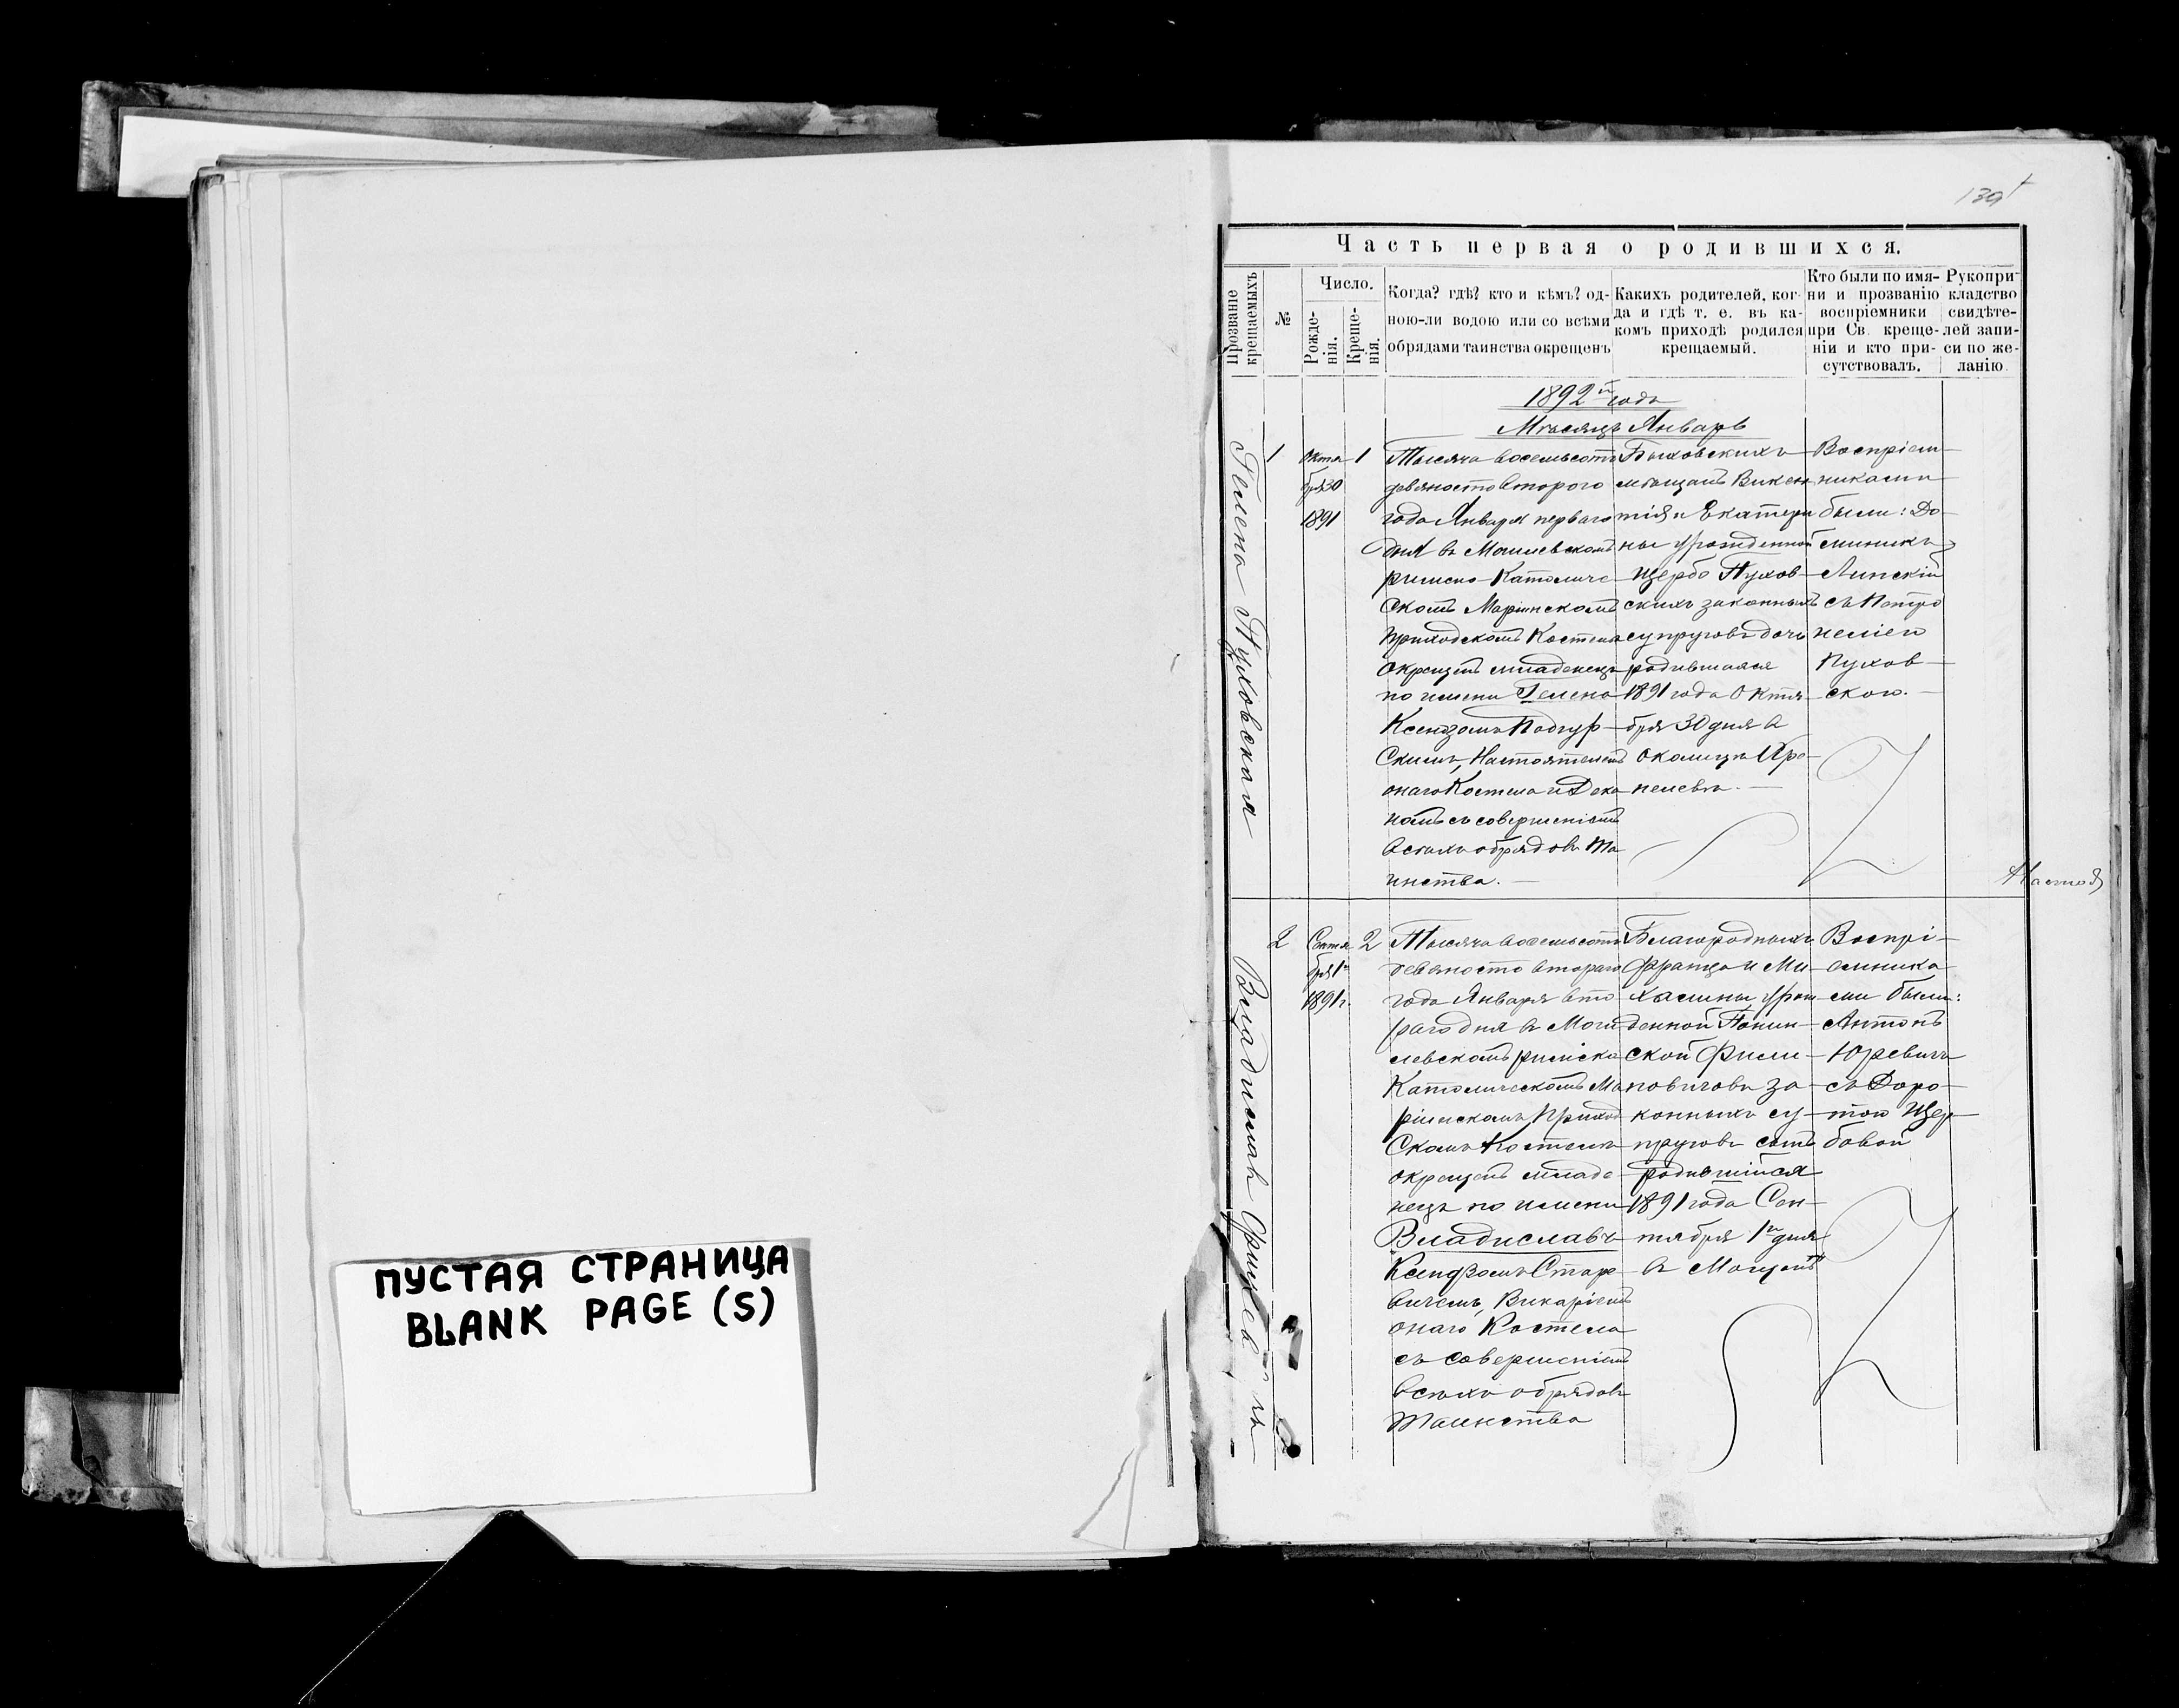 ПУСТАЯ СТРАНИЦА
BLANK PAGE (S)
139
Часть первая о родившихся.
Прозваніе крещаемыхъ
№
Число.
Рожде-
нія.
Креще-
нія.
Когда? гдѣ? кто и кѣмъ? од-
ною-ли водою или со всѣми
обрядами таинства окрещенъ
Какихъ родителей, ког-
да и гдѣ т. е. въ ка-
комъ приходѣ родился
крещаемый.
Кто были по имя-
ни и прозванію
воспріемники
при Св. креще-
ніи и кто при-
сутствовалъ.
Рукопри-
кладство
свидѣте-
лей запи-
си по же-
ланію.
1892й года
Мѣсяцъ Январь
Гелена Пуховская
1
Октя
бря 30
1891
1
Тысяча восемьсотъ
девяносто второго
года Января перваго
дня въ Могилевскомъ
римско-Католиче-
скомъ Маріинскомъ
Приходскомъ Костелѣ
окрещенъ младенецъ
по имени Гелена
Ксендзомъ Подгур-
скимъ, Настоятелемъ
онаго Костела и Дека
номъ съ совершеніемъ
всѣхъ обрядовъ та
инства.
мѣщанъ Викен
тія и Екатери
ны урожденной
Щербо Пухов-
скихъ законныхъ
супруговъ дочь
родившаяся
1891 года Октя-
бря 30 дня в
околицѣ
Воспріем-
никами
были: До-
миникъ
Липскій
съ Петро
неліею
Пухов-
скою.
Владиславъ
2
Сентя
бря 1го
1891 г.
2
Тысяча восемьсотъ
девяносто второго
года Января вто
рого дня въ Моги
левскомъ римско
Католическомъ Ма
ріинскомъ Приход
скомъ Костелѣ
окрещенъ младе
нецъ по имени
Владиславъ
Ксендзомъ
Викаріемъ
онаго Костела
съ совершеніемъ
всѣхъ обрядовъ
таинства
Благородныхъ
Франца и Ми-
халины урож-
денной
за-
конныхъ су-
пруговъ сынъ
родившійся
1891 года Сен-
тября 1го дня
въ
Воспрі-
емника
ми были:
Антонъ
Юревичъ
съ Доро-
тою Щер-
бовой